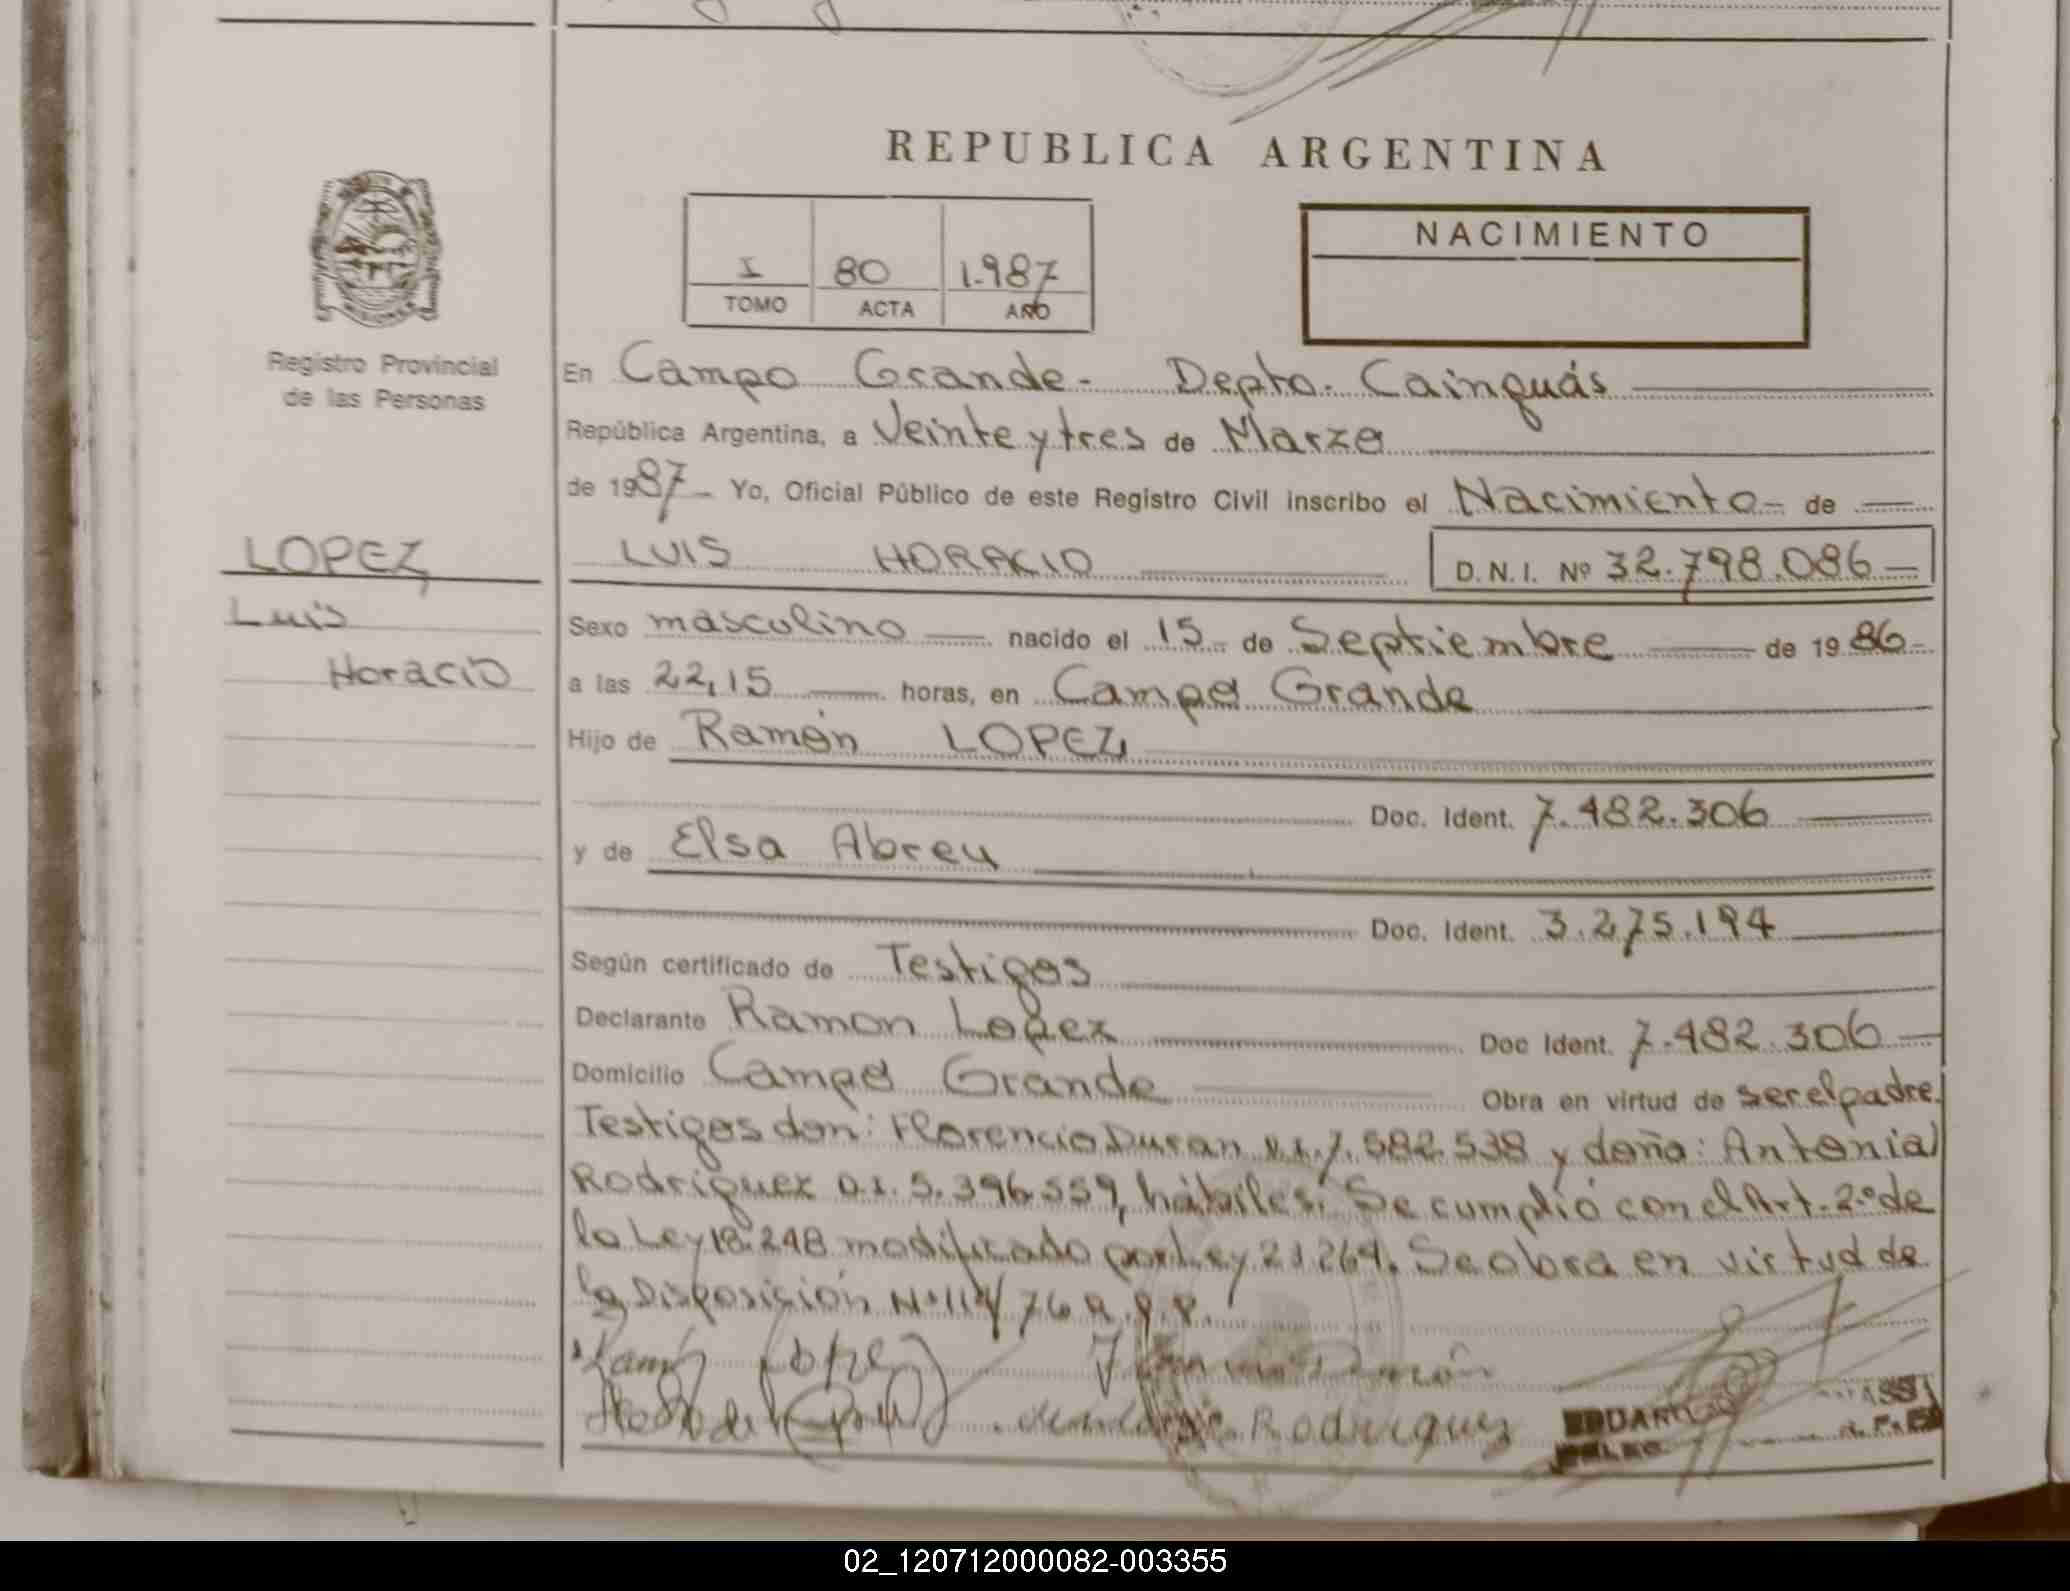 REPUBLICA ARGENTINA
I 80 1.987
TOMO ACTA AÑO
NACIMIENTO
Registro Provincial
de las Personas
LOPEZ
Luis
Horacio
En Campo Grande- Depto. Cainguás
República Argentina, a Veinte y tres de Marzo
de 1987 - Yo, Oficial Público de este Registro Civil inscribo el Nacimiento - de
LUIS HORACIO D.N.I. Nº 32.798.086
Sexo masculino nacido el 15 de Septiembre de 1986
a las 22,15 horas, en Campo Grande
Hijo de Ramón LOPEZ
Doc. Ident. 7.482.306
y de Elsa Abreu
Doc. Ident. 3.275.194
Según certificado de Testigos
Declarante Ramon Lopez Doc Ident. 7.482.306
Domicilio Campo Grande Obra en virtud de ser el padre.
Testigos don: Florencio Duran 7.582.538 y doña: Antonia
Rodriguez D.I. 5.396.559, hábiles. Se cumplió con el Art. 2º de
la Ley 18.248 modificado por Ley 21264. Se obra en virtud de
la Disposición Nº 114/76 R.P.P.
Lopez
Rodriguez
02_120712000082-003355